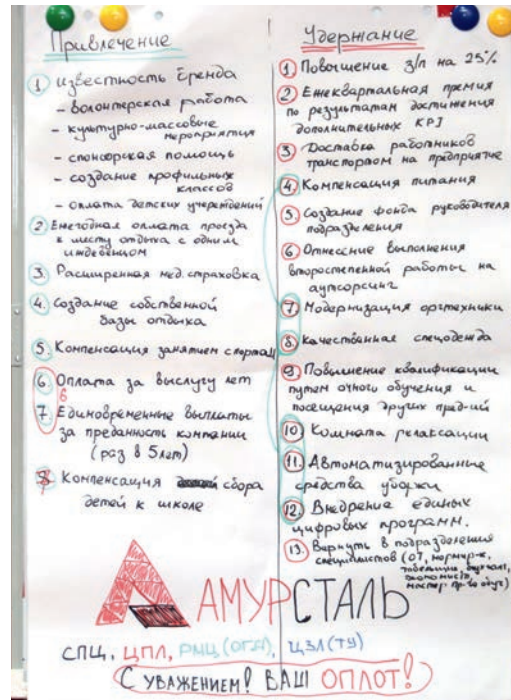 Привлечение
1. Известность бренда
- волонтерская работа
- культурно-массовые
мероприятия
- спонсорская помощь
- создание профильных
классов
- оплата детских учреждений
2. Ежегодная оплата проезда
к месту отдыха с одним
иждевенцем
3. Расширенная мед. страховка
4. Создание собственной
базы отдыха
5. Компенсация занятием спортом
6. Оплата за выслугу лет
6
7. Единовременные выплаты
за преданность компании
(раз в 5 лет)
8. Компенсация сбора
детей к школе
Удержание
1. Повышение з/п на 25%
2. Ежеквартальная премия
по результатам достижения
дополнительных KPI
3. Доставка работников
транспортом на предприятие
4. Компенсация питания
5. Создание фонда руководителя
подразделения
6. Отнесение выполнения
второстепенной работы на
аутсорсинг
7. Модернизация оргтехники
8. Качественная спецодежда
9. Повышение квалификации
путем очного обучения и
посещения других пред-ий
10. Комната релаксации
11. Автоматизированные
средства уборки
12. Внедрение единых
цифровых программ.
13. Вернуть в подразделения
специалистов (ОТ, нормир-к,
табельщик,
экономист,
мастер пр-го обуч)
АМУРСТАЛЬ
СПЦ, ЦПЛ, РМЦ (ОГЭ), ЦЗЛ (ТУ)
С УВАЖЕНИЕМ! ВАШ ОПЛОТ!